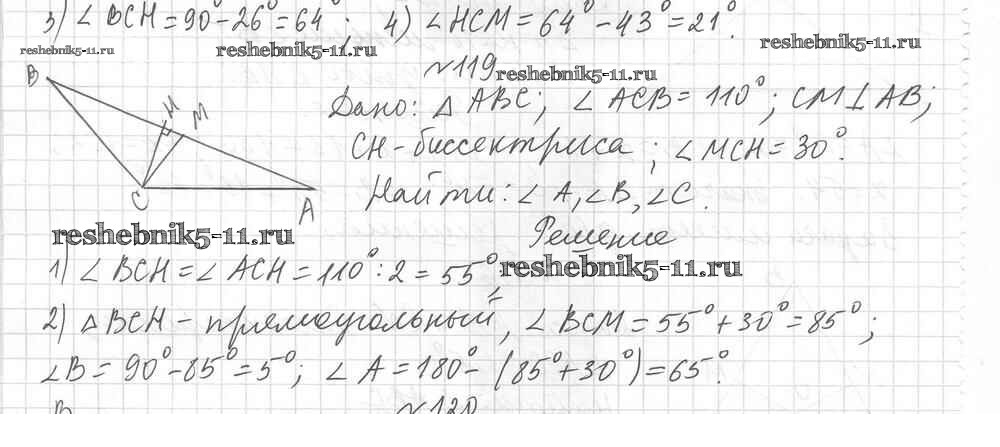 3) ∠ BCH = 90° - 26° = 64° ; 4) ∠ HCM = 64° - 43° = 21°.
reshebnik5-11.ru reshebnik5-11.ru reshebnik5-11.ru
№119 reshebnik5-11.ru
Дано: △ ABC; ∠ ACB = 110°; CM ⊥ AB;
CH - биссектриса ; ∠ MCH = 30°.
Найти: ∠ A, ∠B, ∠C.
B
H
M
C
A
reshebnik5-11.ru
Решение
1) ∠ BCH = ∠ ACH = 110° : 2 = 55°; reshebnik5-11.ru
2) △ BCH - прямоугольный, ∠ BCM = 55° + 30° = 85° ;
∠B = 90° - 85° = 5°; ∠ A = 180° - (85° + 30°) = 65°.
B №120